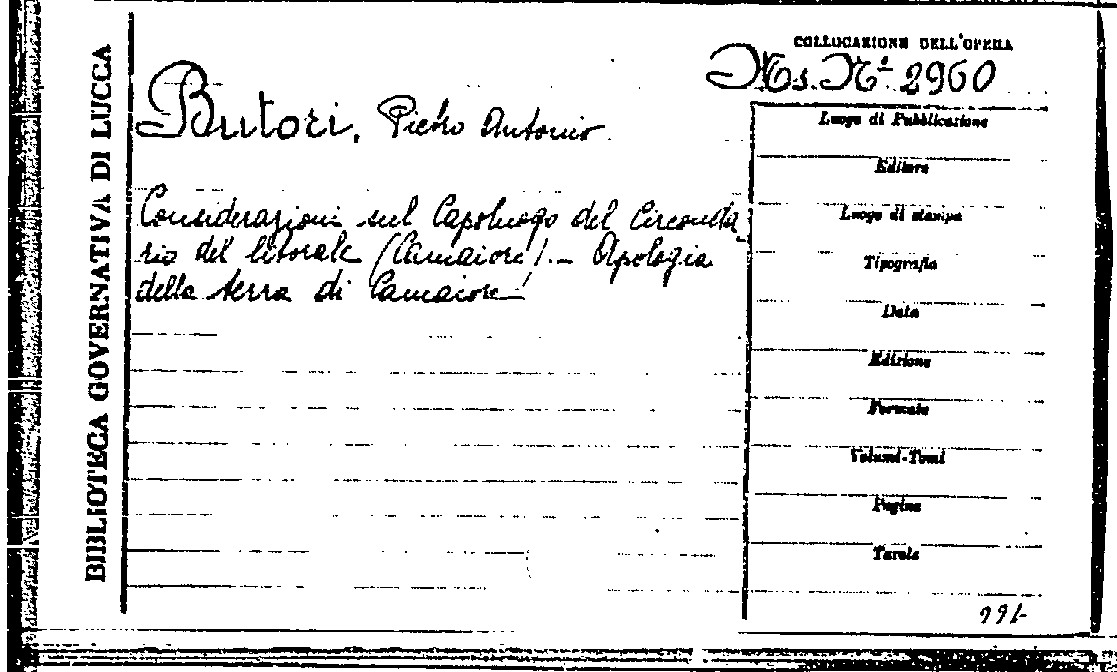 BIBLIOTECA GOVERNATIVA DI LUCCA
COLLOCAZIONE DELL'OPERA
Ms. N° 2960
Butori, Pietro Antonio
Considerazioni sul Capoluogo del Circonda
rio del litorale (Camaiore). - Apologia
della terra di Camaiore
Luogo di Pubblicazione
Editore
Luogo di stampa
Tipografia
Data
Edizione
Formato
Volumi-Tomi
Pagine
Tavole